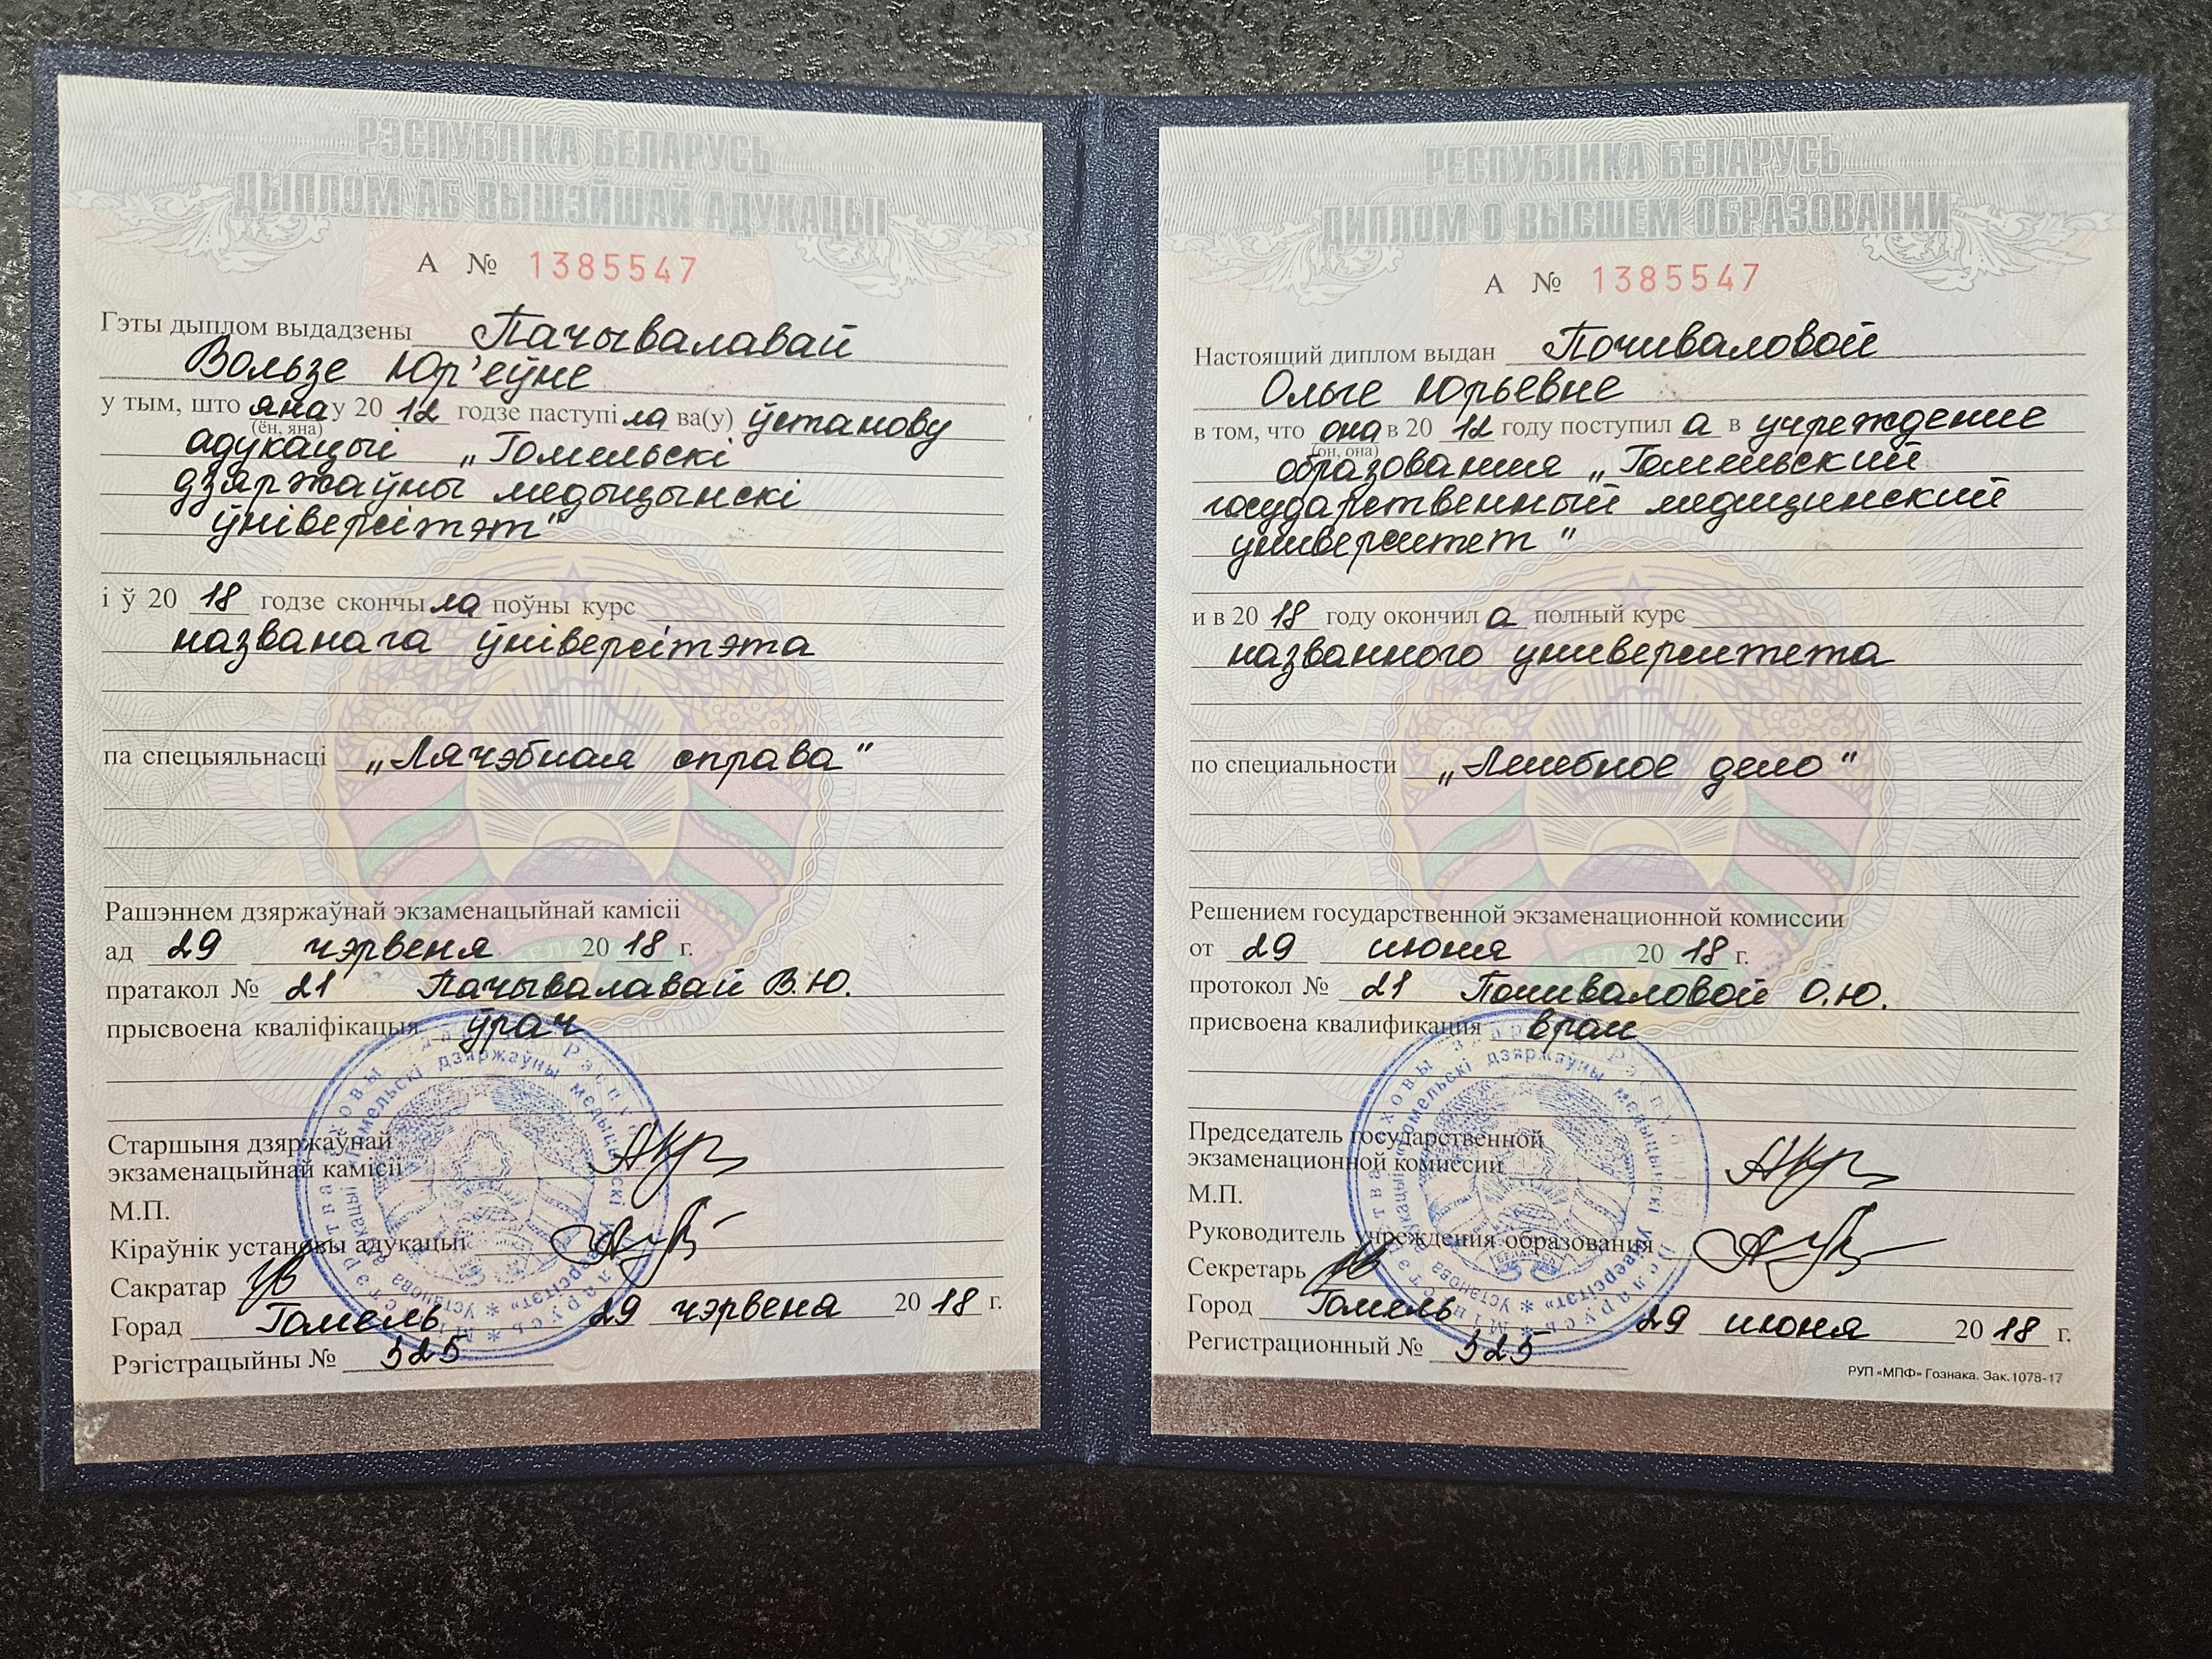 РЭСПУБЛІКА БЕЛАРУСЬ
ДЫПЛОМ АБ ВЫШЭЙШАЙ АДУКАЦЫІ
А № 1385547
Гэты дыплом выдадзены Пачывалавай
Вользе Юр'еўне
у тым, што яна у 2012 годзе паступіла ва(у) ўстанову
(ён, яна)
адукацыі „Гомельскі
дзяржаўны медыцынскі
ўніверсітэт"
і ў 2018 годзе скончыла поўны курс
названага ўніверсітэта
па спецыяльнасці „Лячэбная справа"
Рашэннем дзяржаўнай экзаменацыйнай камісіі
ад 29 чэрвеня 2018 г.
пратакол № 21 Пачывалавай В.Ю.
прысвоена кваліфікацыя ўрач
Старшыня дзяржаўнай
экзаменацыйнай камісіі
М.П.
Кіраўнік установы адукацыі
Сакратар
Горад Гомель 29 чэрвеня 2018 г.
Рэгістрацыйны № 525
РЕСПУБЛИКА БЕЛАРУСЬ
ДИПЛОМ О ВЫСШЕМ ОБРАЗОВАНИИ
А № 1385547
Настоящий диплом выдан Почиваловой
Ольге Юрьевне
в том, что она в 2012 году поступила в учреждение
(он, она)
образования „Гомельский
государственный медицинский
университет"
и в 2018 году окончила полный курс
названного университета
по специальности „Лечебное дело"
Решением государственной экзаменационной комиссии
от 29 июня 2018 г.
протокол № 21 Почиваловой О.Ю.
присвоена квалификация врач
Председатель государственной
экзаменационной комиссии
М.П.
Руководитель учреждения образования
Секретарь
Город Гомель 29 июня 2018 г.
Регистрационный № 525
РУП «МПФ» Гознака. Зак.1078-17